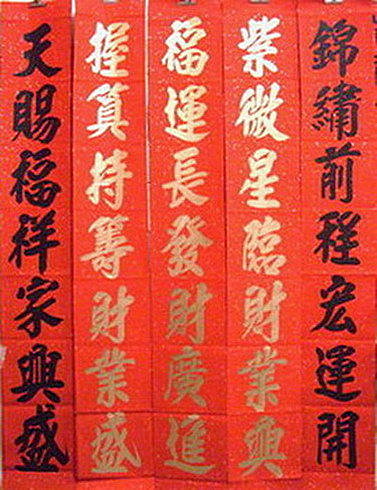 錦繡前程宏運開
紫微星臨財業興
福運長發財廣進
握算持籌財業盛
天賜福祥家興盛